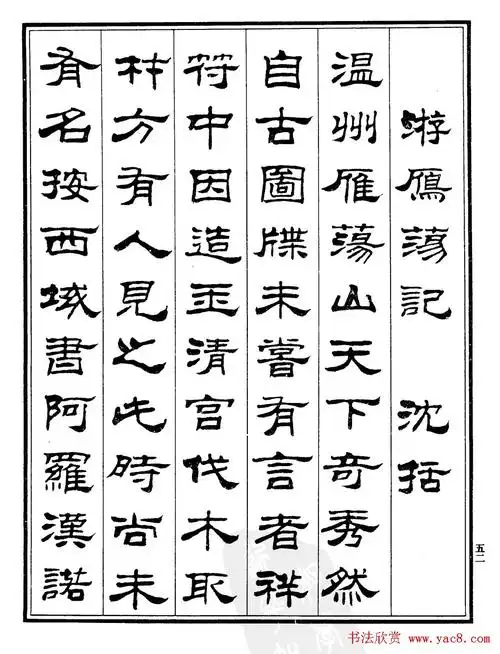 游鴈蕩記 沈括
温州雁蕩山天下奇秀然
自古圖牒未嘗有言者祥
符中因造玉清宫伐木取
材方有人見之此時尚未
有名按西域書阿羅漢諾
五二
书法欣赏 www.yac8.com